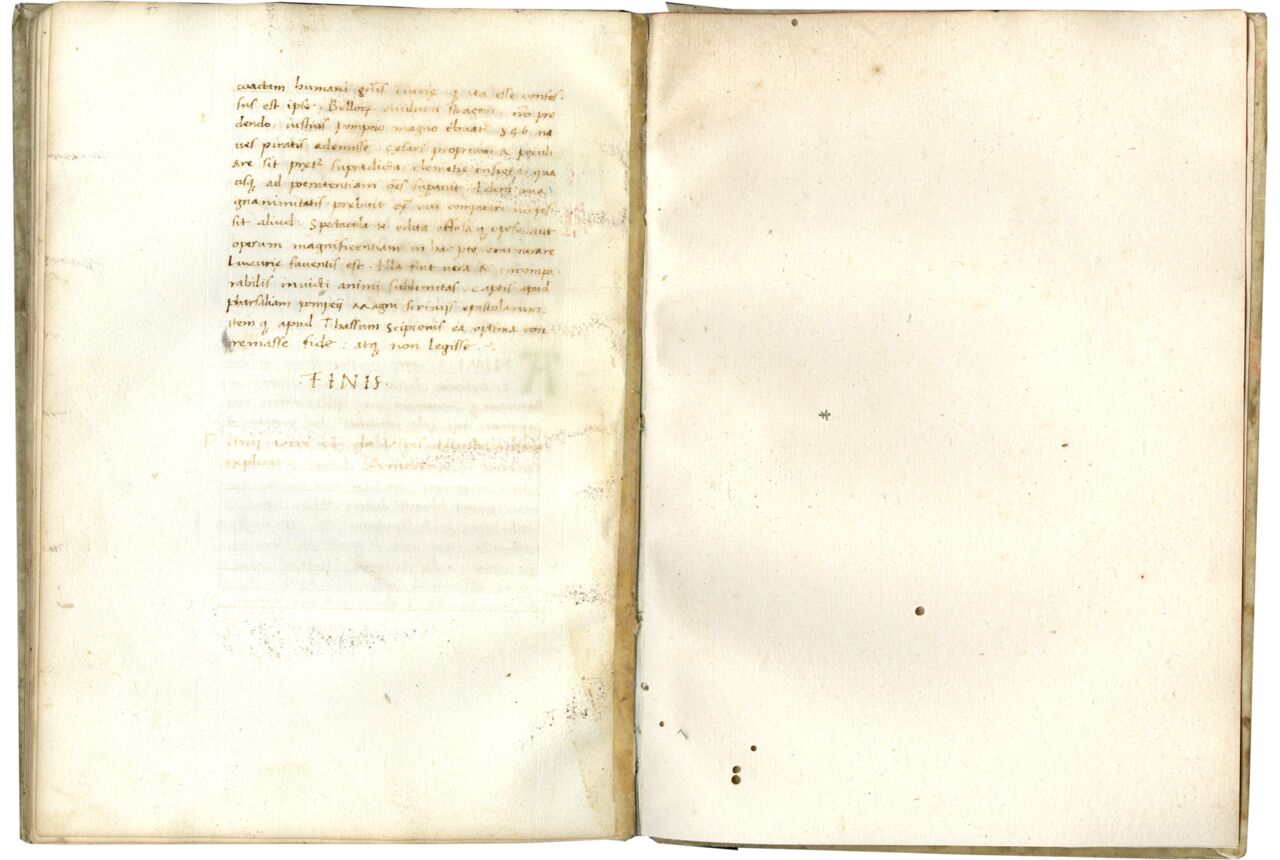 coactam humani gñis iniurię q ita esse confes-
sus est ipse. Belloꝝ ciuilium stragem nõ pro
dendo, iustius pompeio magno tbuat 846 na
ues piratis ademisse. Cesari proprium & peculi
are sit prętᵉ supradicta clementie insigne qua
usqꝫ ad poenitentiam oẽs supauit. Idem ma
gnanimitatis prebuit exᵐ cui comparari nõ pos
sit aliud. Spectacula edita effusas q opes aut
operum magnificentiam in hac pte enumerare
Luxurię fauentis est. Illa fuit uera & incompa
rabilis inuicti animi sublimitas. Captis apud
pharsaliam pompeij Magni scrinijs epistolarum:
item q apud Thassum Scipionis ea optima con
cremasse fide: atqꝫ non legisse.
·FINIS·
Plinij
explicit Amen